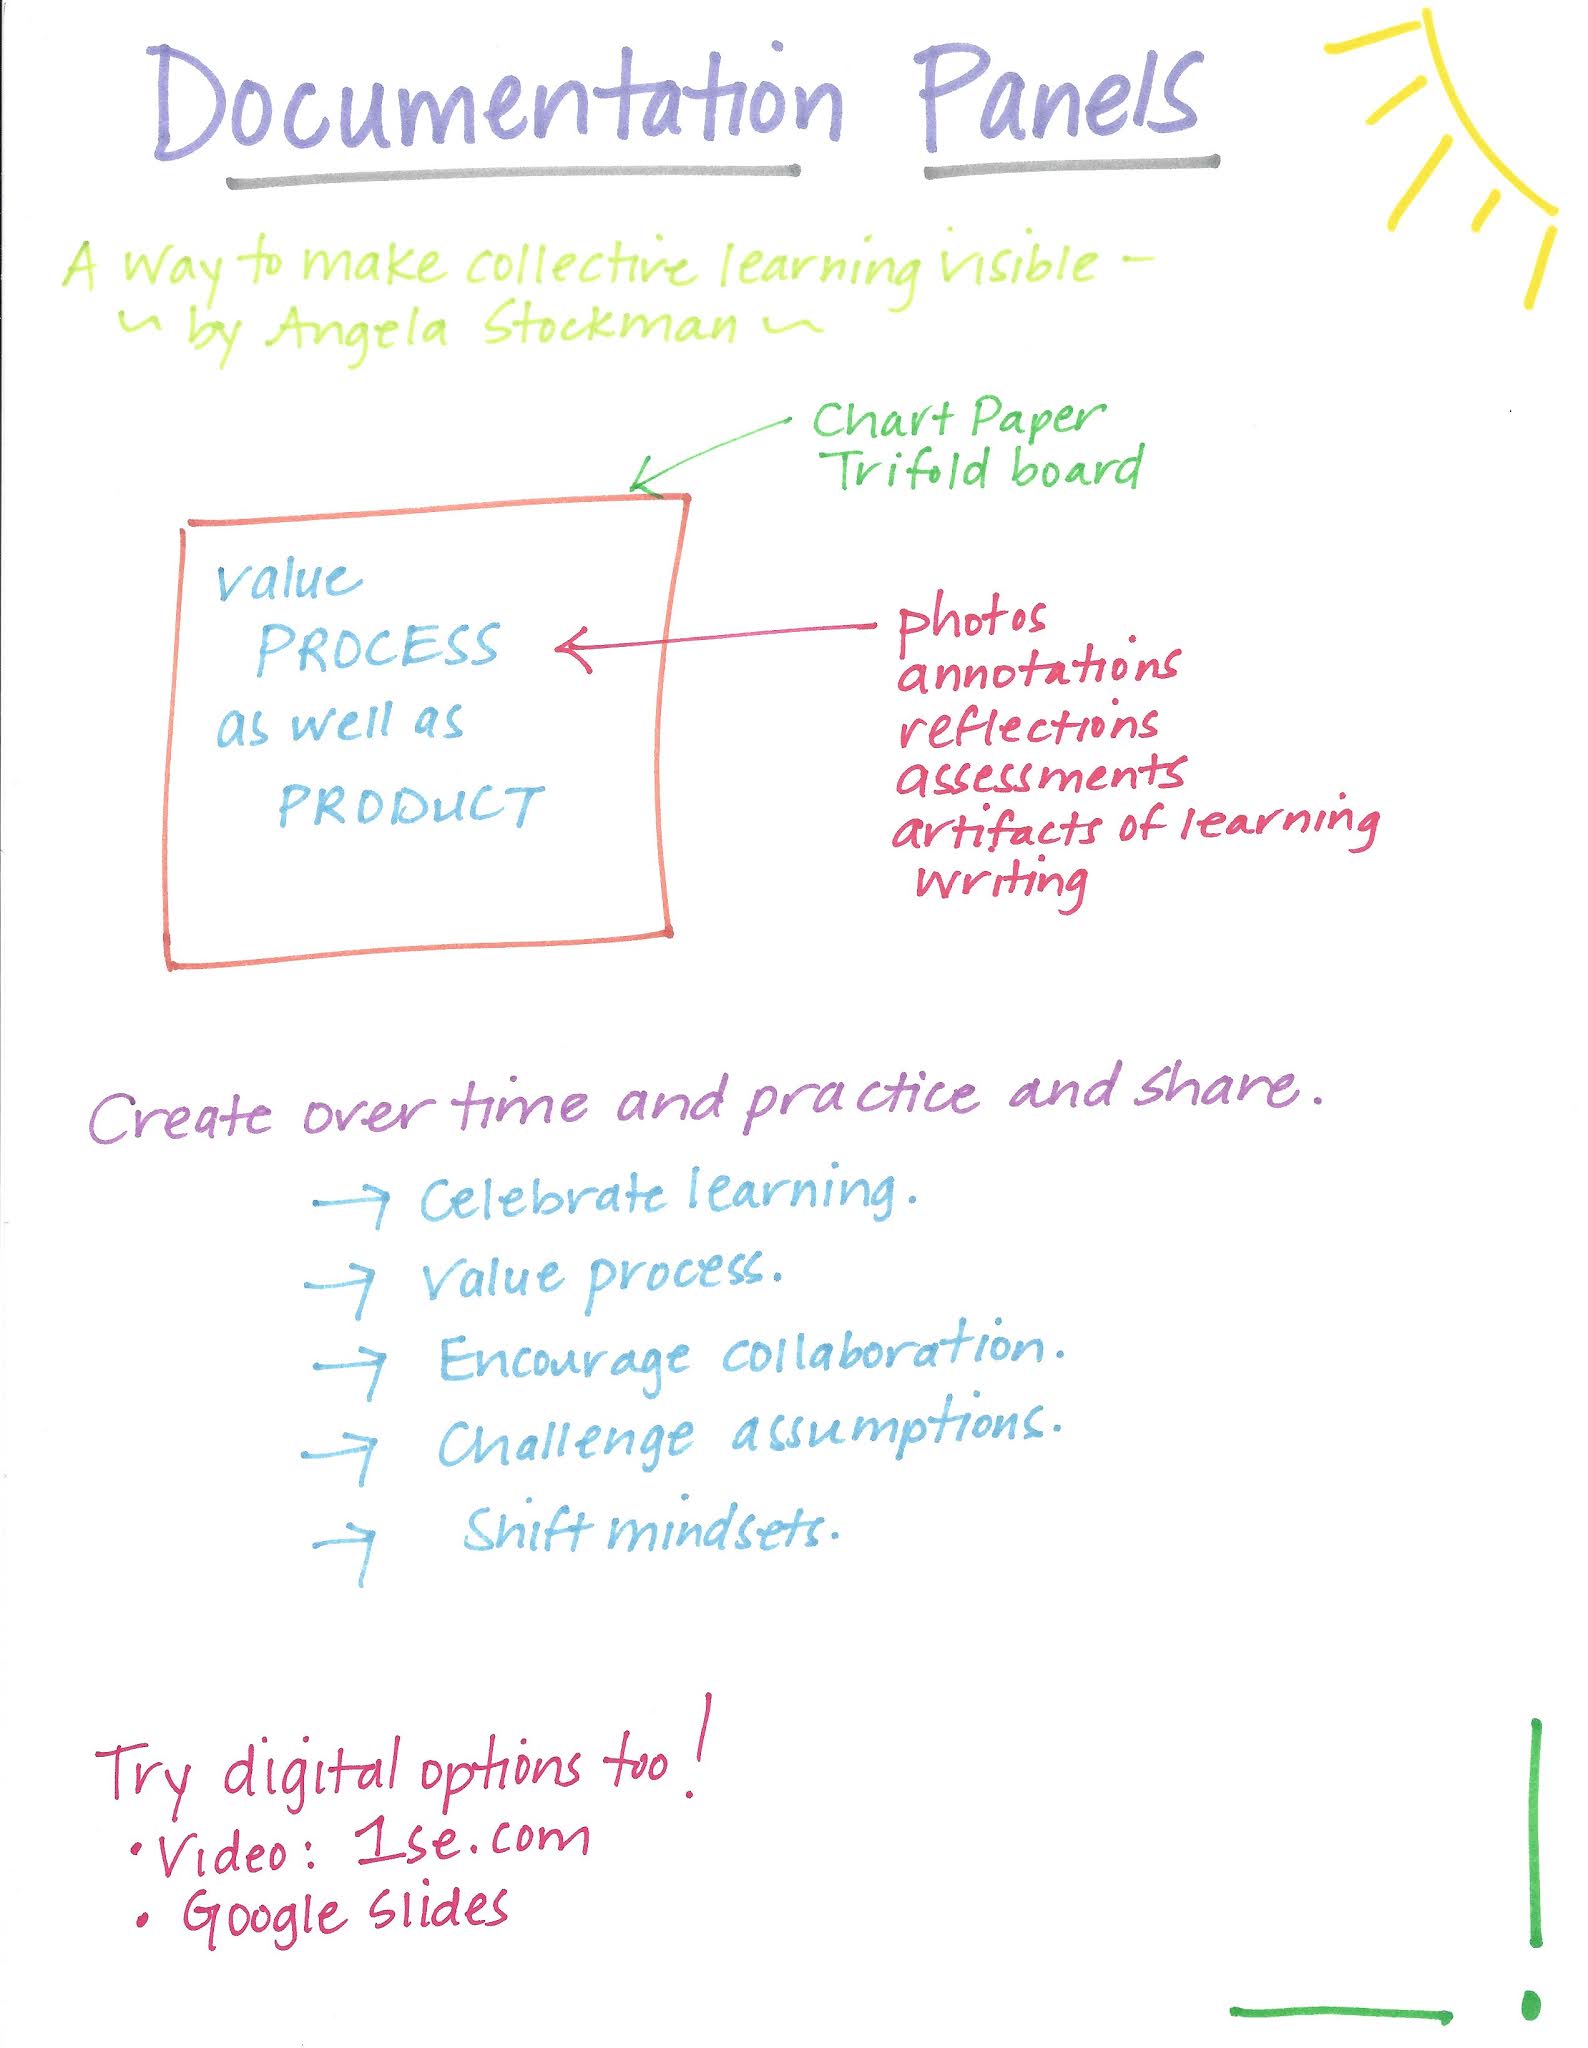 Documentation Panels
A way to make collective learning visible -
~ by Angela Stockman ~
Chart Paper
Trifold board
value
PROCESS
as well as
PRODUCT
photos
annotations
reflections
assessments
artifacts of learning
writing
Create over time and practice and share.
→ Celebrate learning.
→ Value process.
→ Encourage collaboration.
→ Challenge assumptions.
→ Shift mindsets.
Try digital options too!
• Video: 1se.com
• Google Slides